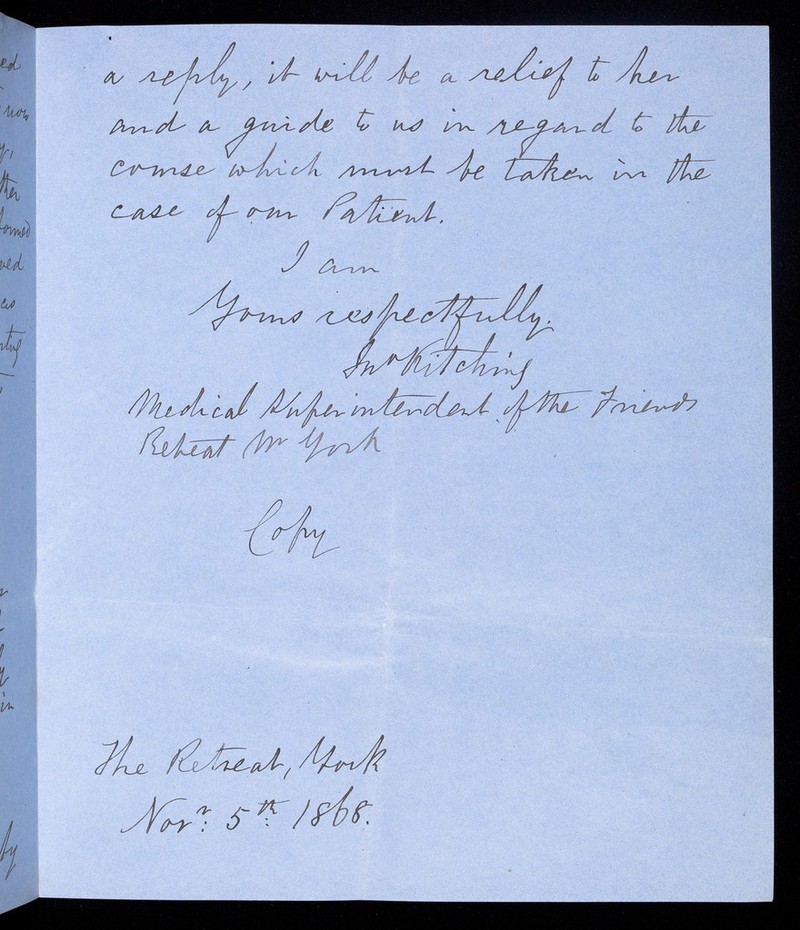 a reply, it will be a relief to her
and a guide to us in regard to the
course which must be taken in the
case of our Patient.
I am
Yours respectfully.
Jno Kitching
Medical Superintendent of the Friends
Retreat Nr York
Copy
The Retreat, York
Novr: 5th: 1868.